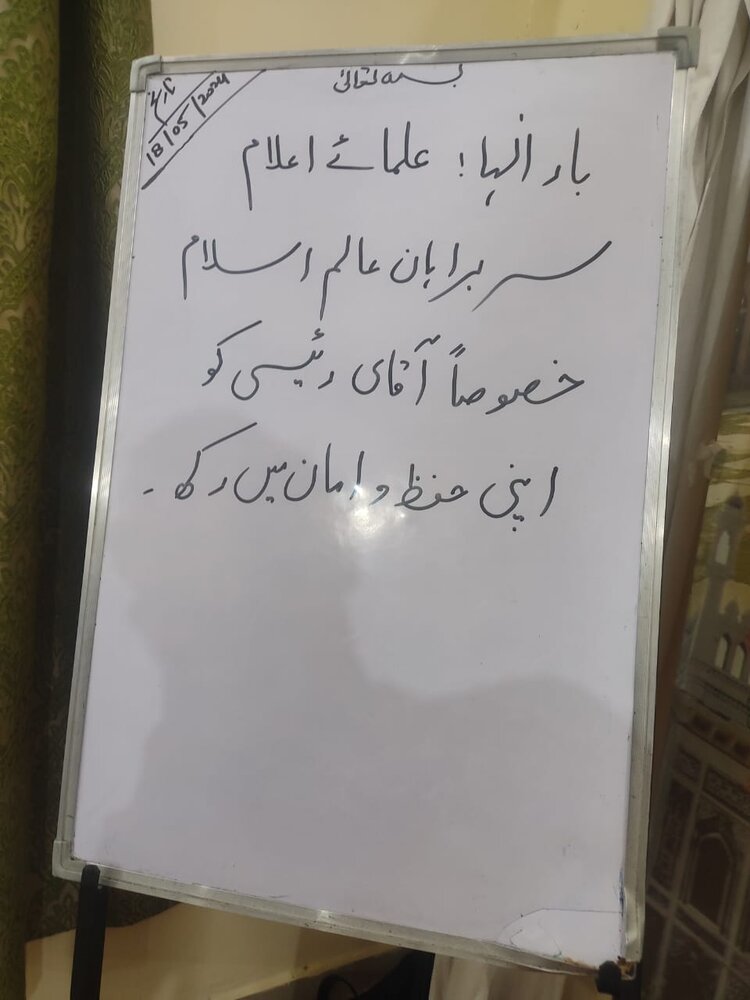 بسمہ تعالیٰ
تاریخ
18/05/2024
بار الٰہا! علمائے اعلام
سربراہان عالم اسلام
خصوصاً آقای رئیسی کو
اپنی حفظ و امان میں رکھ۔